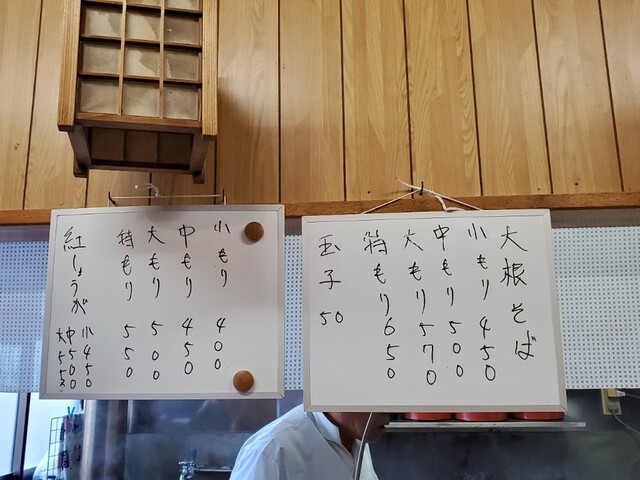 大根そば
小もり 450
中もり 500
大もり 570
特もり 650
玉子 50
小もり 400
中もり 450
大もり 500
特もり 550
紅しょうが 小450
中500